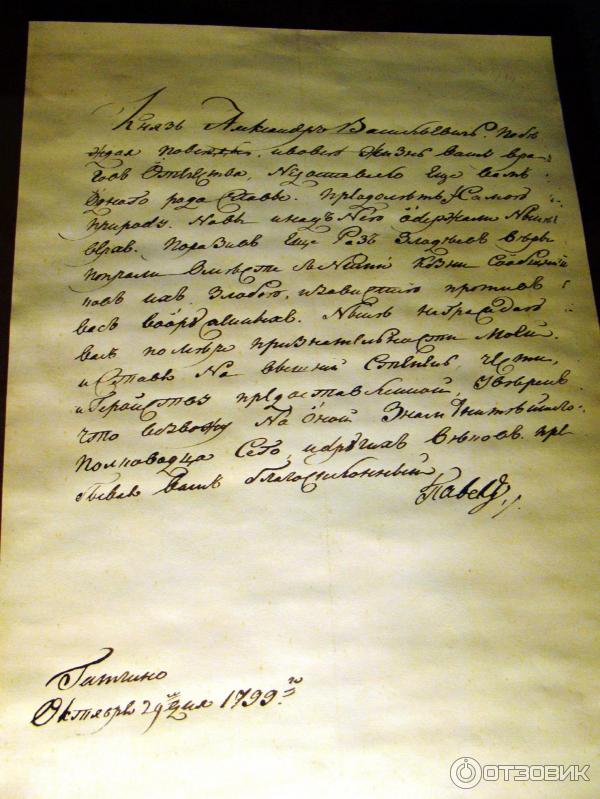 Князь Александръ Васильевичь. Побѣ
ждая повсюду, и во всю жизнь вашу вра-
говъ Отечества, Недоставало Еще вамъ
Однаго рода Славы. Преодолѣть Самою
природу. Но вы и надъ Нею одержали Нынѣ
верхъ. Поразивъ Еще Разъ Злодѣевъ вѣры
попрали Вмѣстѣ Сними Козни Сообщни
ковъ ихъ, Злобою, и завистію противъ
васъ вооружившихъ. Нынѣ награждаю
васъ по мѣрѣ признательности Моей.
и Ставя На вышній Степень, чести,
и Геройству предоставленной, Увѣренъ
что возвожу На Оной Знаменитѣйшаго
Полководца Сего, и другихъ вѣковъ. пре
бываю вамъ благосклонный
Павелъ
Гатчино
Октября 29 дня 1799.го
ОТЗОВИК